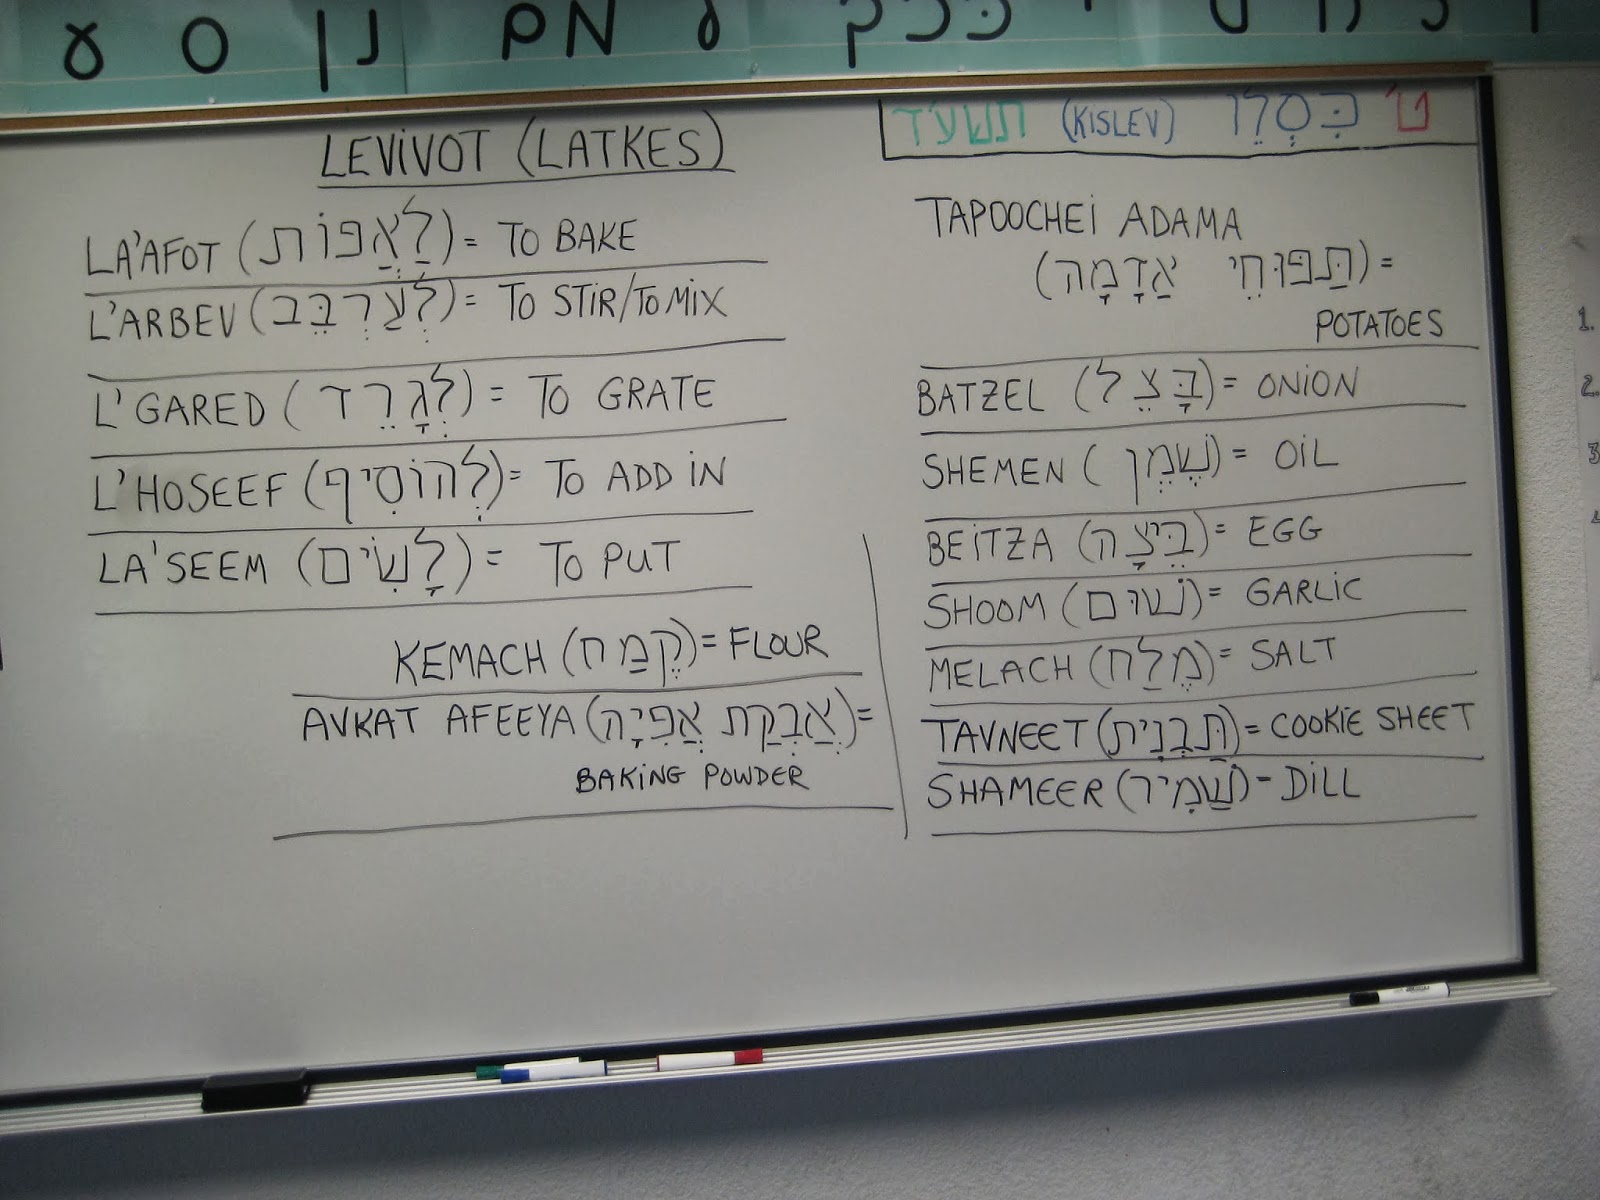 כּ כ ך ל מ ם נ ן ס ע
ט' כִּסְלֵו (KISLEV) תשע"ד
LEVIVOT (LATKES)
LA'AFOT (לַאֲפוֹת) = TO BAKE
L'ARBEV (לְעַרְבֵּב) = TO STIR/TO MIX
L'GARED (לְגָרֵד) = TO GRATE
L'HOSEEF (לְהוֹסִיף) = TO ADD IN
LA'SEEM (לָשִׂים) = TO PUT
KEMACH (קֶמַח) = FLOUR
AVKAT AFEEYA (אֲבְקַת אֲפִיָּה) =
BAKING POWDER
TAPOOCHEI ADAMA
(תַּפּוּחֵי אַדָמָה) =
POTATOES
BATZEL (בָּצֵל) = ONION
SHEMEN (שֶׁמֶן) = OIL
BEITZA (בֵּיצָה) = EGG
SHOOM (שׁוּם) = GARLIC
MELACH (מֶלַח) = SALT
TAVNEET (תַּבְנִית) = COOKIE SHEET
SHAMEER (שַׁמִיר) = DILL
1.
2.
3